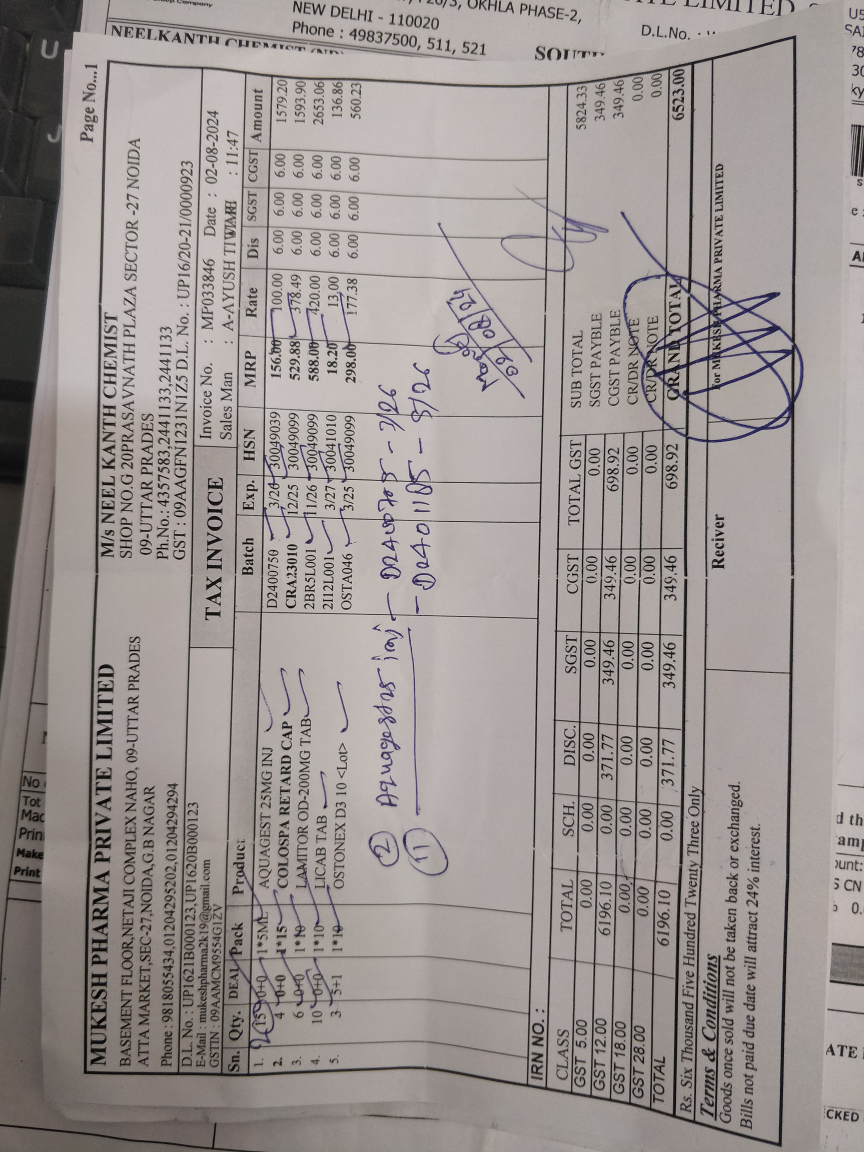 NEW DELHI - 110020
Phone : 49837500, 511, 521
D.L.No. :
Page No...1
MUKESH PHARMA PRIVATE LIMITED
BASEMENT FLOOR,NETAJI COMPLEX NAHO, 09-UTTAR PRADES
ATTA MARKET,SEC-27,NOIDA,G.B NAGAR
Phone :9818055434,01204295202,01204294294
D.L. No. : UP1621B000123,UP1620B000123
E-Mail : mukeshpharma2k19@gmail.com
GSTIN : 09AAMCM9554G1ZV
M/s NEEL KANTH CHEMIST
SHOP NO.G 20PRASAVNATH PLAZA SECTOR -27 NOIDA
09-UTTAR PRADES
Ph.No.: 4357583,2441133,2441133
GST : 09AAGFN1231N1Z5 D.L. No. : UP16/20-21/0000923
TAX INVOICE
Invoice No. : MP033846 Date : 02-08-2024
Sales Man : A-AYUSH TIWARI : 11:47
Sn. Qty. DEAL Pack Product Batch Exp. HSN MRP Rate Dis SGST CGST Amount
1. 15 0+0 1*5ML AQUAGEST 25MG INJ D2400750 3/26 30049039 156.00 100.00 6.00 6.00 6.00 1579.20
2. 4 0+0 1*15 COLOSPA RETARD CAP CRA23010 12/25 30049099 529.88 378.49 6.00 6.00 6.00 1593.90
3. 6 0+0 1*10 LAMITOR OD-200MG TAB 2BR5L001 11/26 30049099 588.00 420.00 6.00 6.00 6.00 2653.06
4. 10 0+0 1*10 LICAB TAB 2I12L001 3/27 30041010 18.20 13.00 6.00 6.00 6.00 136.86
5. 3 5+1 1*10 OSTONEX D3 10 <Lot> OSTA046 3/25 30049099 298.00 177.38 6.00 6.00 6.00 560.23
② Aquagest 25 inj — D2400705 - 7/26
⑪ — D2401185 - 8/26
IRN NO. :
CLASS TOTAL SCH. DISC. SGST CGST TOTAL GST
GST 5.00 0.00 0.00 0.00 0.00 0.00 0.00
GST 12.00 6196.10 0.00 371.77 349.46 349.46 698.92
GST 18.00 0.00 0.00 0.00 0.00 0.00 0.00
GST 28.00 0.00 0.00 0.00 0.00 0.00 0.00
TOTAL 6196.10 0.00 371.77 349.46 349.46 698.92
SUB TOTAL 5824.33
SGST PAYBLE 349.46
CGST PAYBLE 349.46
CR/DR NOTE 0.00
CR/DR NOTE 0.00
GRAND TOTAL 6523.00
Rs. Six Thousand Five Hundred Twenty Three Only
Terms & Conditions
Goods once sold will not be taken back or exchanged.
Bills not paid due date will attract 24% interest.
Reciver
For MUKESH PHARMA PRIVATE LIMITED